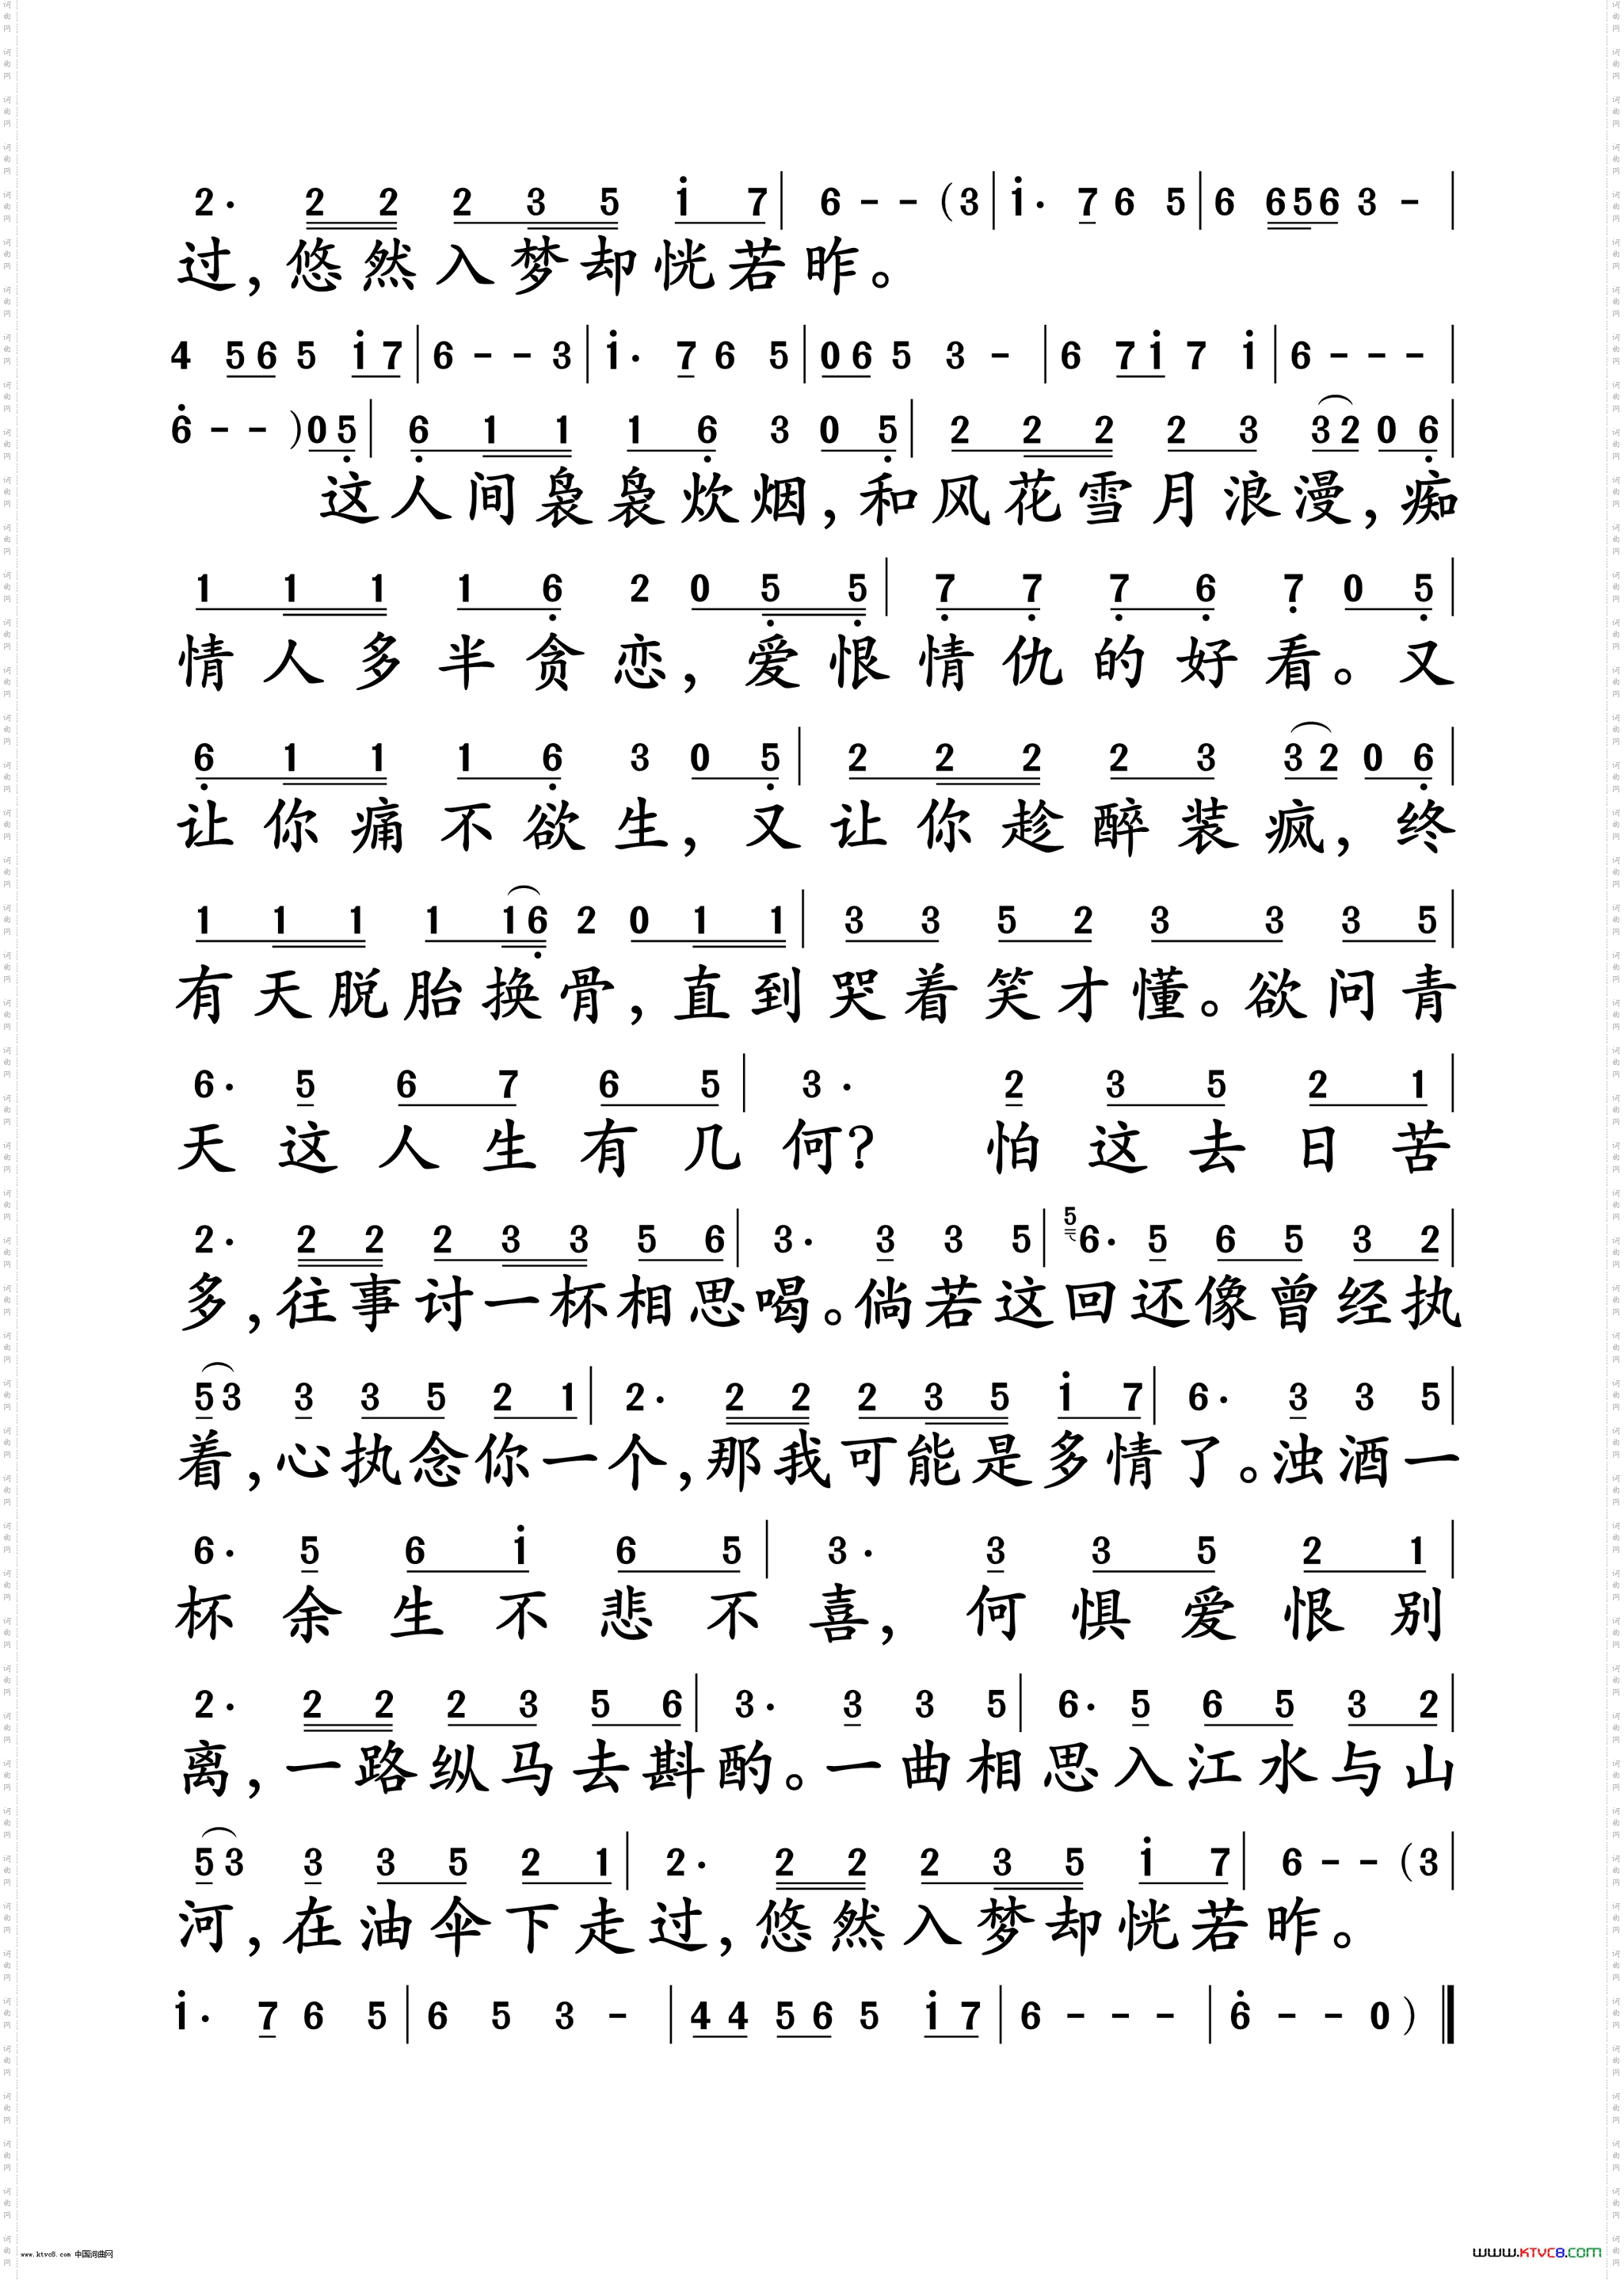 2· 2 2 2 3 5 i 7 | 6 - - (3 | i· 7 6 5 | 6 656 3 - |
过,悠然入梦却恍若昨。
4 56 5 i7 | 6 - - 3 | i· 7 6 5 | 06 5 3 - | 6 7i 7 i | 6 - - - |
6 - - )05 | 6 1 1 1 6 3 0 5 | 2 2 2 2 3 32 0 6 |
这人间袅袅炊烟,和风花雪月浪漫,痴
1 1 1 1 6 2 0 5 5 | 7 7 7 6 7 0 5 |
情人多半贪恋,爱恨情仇的好看。又
6 1 1 1 6 3 0 5 | 2 2 2 2 3 32 0 6 |
让你痛不欲生,又让你趁醉装疯,终
1 1 1 1 16 2 0 1 1 | 3 3 5 2 3 3 3 5 |
有天脱胎换骨,直到哭着笑才懂。欲问青
6· 5 6 7 6 5 | 3· 2 3 5 2 1 |
天这人生有几何? 怕这去日苦
2· 2 2 2 3 3 5 6 | 3· 3 3 5 | 5 6· 5 6 5 3 2 |
多,往事讨一杯相思喝。倘若这回还像曾经执
53 3 3 5 2 1 | 2· 2 2 2 3 5 i 7 | 6· 3 3 5 |
着,心执念你一个,那我可能是多情了。浊酒一
6· 5 6 i 6 5 | 3· 3 3 5 2 1 |
杯余生不悲不喜,何惧爱恨别
2· 2 2 2 3 5 6 | 3· 3 3 5 | 6· 5 6 5 3 2 |
离,一路纵马去斟酌。一曲相思入江水与山
53 3 3 5 2 1 | 2· 2 2 2 3 5 i 7 | 6 - - (3 |
河,在油伞下走过,悠然入梦却恍若昨。
i· 7 6 5 | 6 5 3 - | 44 56 5 i7 | 6 - - - | 6 - - 0) ‖
www.ktvc8.com 中国词曲网
WWW.KTVC8.COM